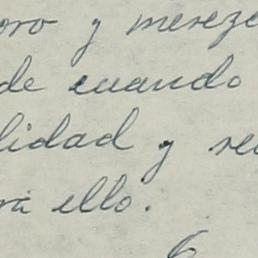 oro y mereze
de cuando
lidad y re
ra ello.